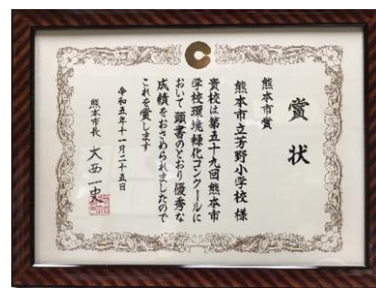 賞状
熊本市賞
熊本市立芳野小学校 様
貴校は第五十九回熊本市
学校環境緑化コンクールに
おいて頭書のとおり優秀な
成績をおさめられましたので
これを賞します
令和五年十一月二十五日
熊本市長 大西一史